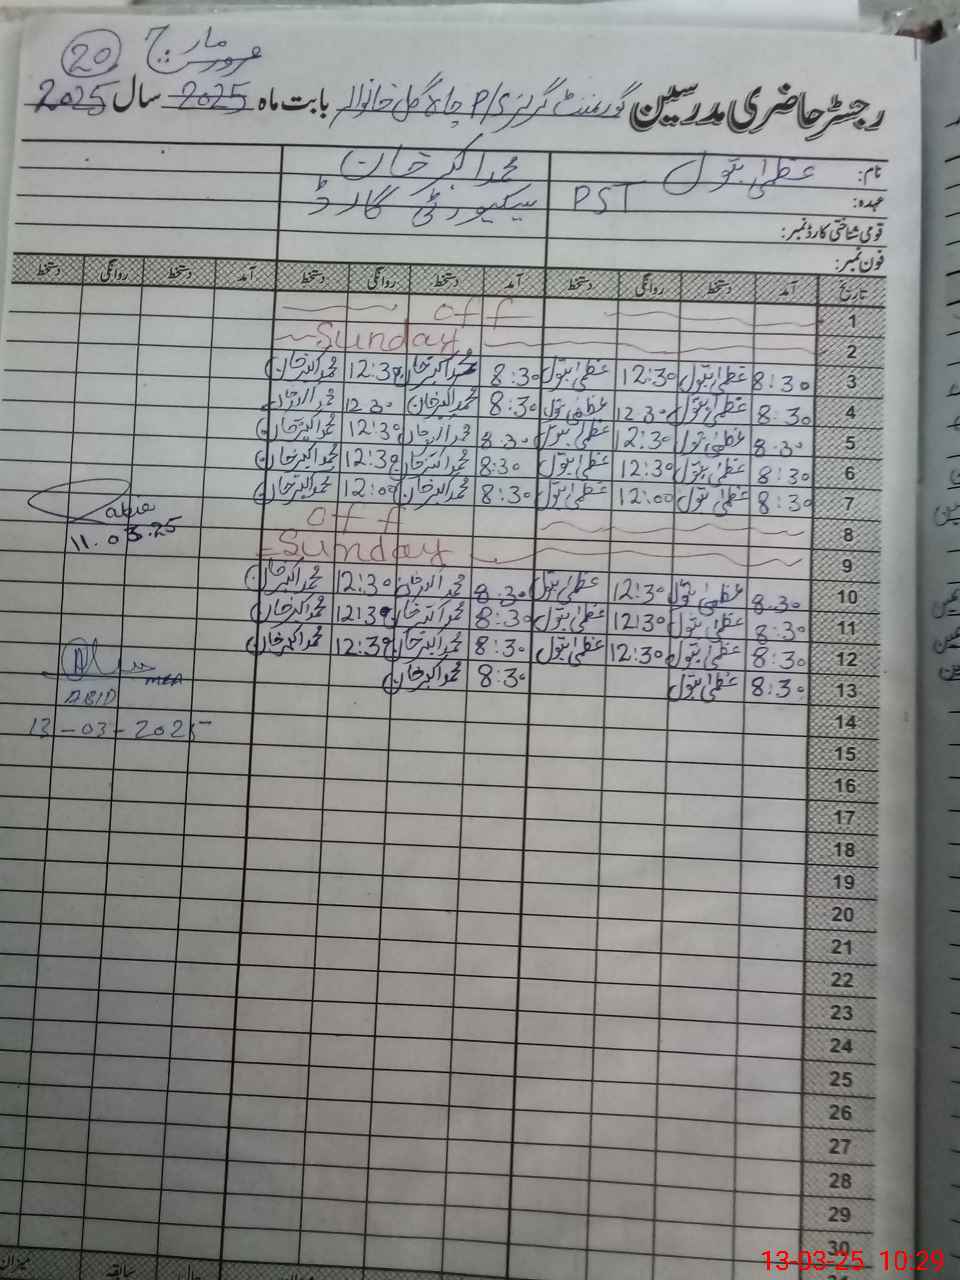 20 مارچ
رجسٹر حاضری مدرسین گورنمنٹ گرلز P/S چاہ گل خانوالہ بابت ماہ 2025 سال 2025
نام: عظمیٰ بتول محمد اکبر خان
عہدہ: PST سیکیورٹی گارڈ
قومی شناختی کارڈ نمبر:
فون نمبر:
تاریخ آمد دستخط روانگی دستخط آمد دستخط روانگی دستخط آمد دستخط روانگی دستخط
1 off
2 Sunday
3 8:30 عظمیٰ بتول 12:30 عظمیٰ بتول 8:30 محمد اکبر خان 12:30 محمد اکبر خان
4 8:30 عظمیٰ بتول 12:30 عظمیٰ بتول 8:30 محمد اکبر خان 12:30 محمد اکبر خان
5 8:30 عظمیٰ بتول 12:30 عظمیٰ بتول 8:30 محمد اکبر خان 12:30 محمد اکبر خان
6 8:30 عظمیٰ بتول 12:30 عظمیٰ بتول 8:30 محمد اکبر خان 12:30 محمد اکبر خان
7 8:30 عظمیٰ بتول 12:00 عظمیٰ بتول 8:30 محمد اکبر خان 12:00 محمد اکبر خان
8 off
9 Sunday
11.03.25
10 8:30 عظمیٰ بتول 12:30 عظمیٰ بتول 8:30 محمد اکبر خان 12:30 محمد اکبر خان
11 8:30 عظمیٰ بتول 12:30 عظمیٰ بتول 8:30 محمد اکبر خان 12:30 محمد اکبر خان
12 8:30 عظمیٰ بتول 12:30 عظمیٰ بتول 8:30 محمد اکبر خان 12:30 محمد اکبر خان
13 8:30 عظمیٰ بتول 8:30 محمد اکبر خان
MEA
ABID
13-03-2025
14
15
16
17
18
19
20
21
22
23
24
25
26
27
28
29
30
میزان سابقہ
13-03-25 10:29